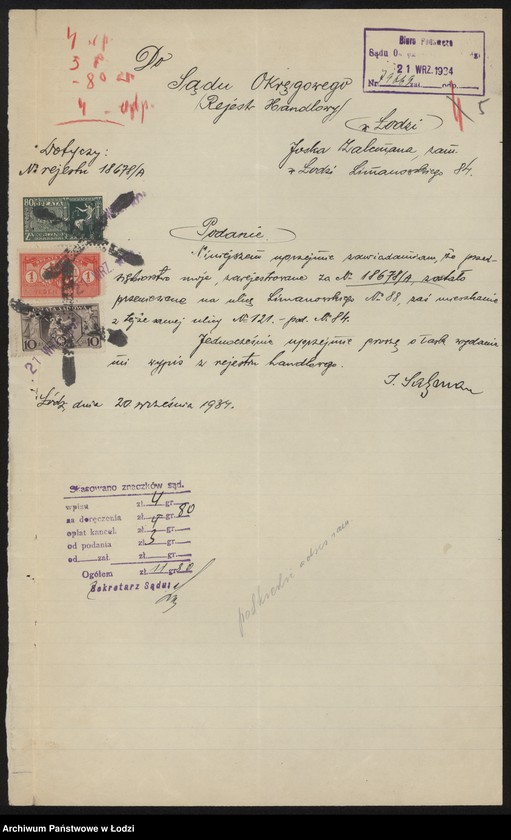 4 zp.
3 p
- 80 gr
4 - odp.
Do
Sądu Okręgowego
/Rejestr Handlowy/
w Łodzi
Biuro Podawcze
21 WRZ. 1934
Nr.
Joska Zalcmana, zam.
w Łodzi Limanowskiego 84.
Dotyczy:
№ rejestru 18678/A
80
1
10 10
21 WRZ.
Podanie.
Niniejszem uprzejmie zawiadamiam, że przed-
siębiorstwo moje, zarejestrowane za № 18678/A, zostało
przeniesione na ulicę Limanowskiego № 88, zaś mieszkanie
z tejże samej ulicy № 121 - pod № 84.
Jednocześnie uprzejmie proszę o łask. wydanie
mi wypis z rejestru handlowego.
J. Salzman
Łódź, dnia 20 września 1934.
Skasowano znaczków sąd.
wpisu zł. 4 gr.
za doręczenia zł. gr. 80
opłat kancel. zł. 4 gr.
od podania zł. 3 gr.
od zał. zł. gr.
Ogółem zł. 11 gr. 80
Sekretarz Sądu:
podkreślić adres
Archiwum Państwowe w Łodzi